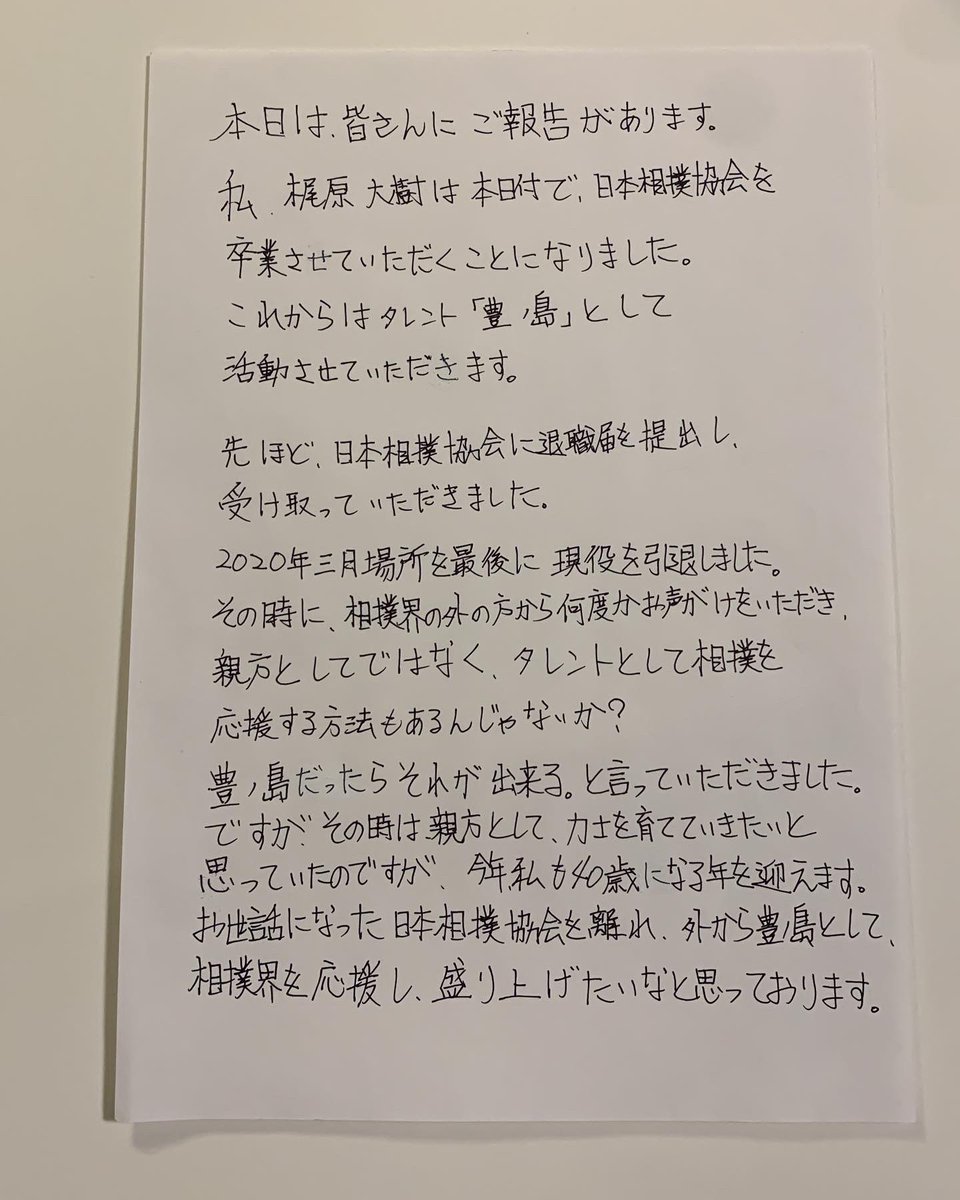 本日は、皆さんにご報告があります。
私、梶原大樹は本日付で、日本相撲協会を
卒業させていただくことになりました。
これからはタレント「豊ノ島」として
活動させていただきます。
先ほど、日本相撲協会に退職届を提出し、
受け取っていただきました。
2020年三月場所を最後に現役を引退しました。
その時に、相撲界の外の方から何度かお声がけをいただき、
親方としてではなく、タレントとして相撲を
応援する方法もあるんじゃないか?
豊ノ島だったらそれが出来る。と言っていただきました。
ですが、その時は親方として、力士を育てていきたいと
思っていたのですが、今年、私も40歳になる年を迎えます。
お世話になった日本相撲協会を離れ、外から豊ノ島として、
相撲界を応援し、盛り上げたいなと思っております。